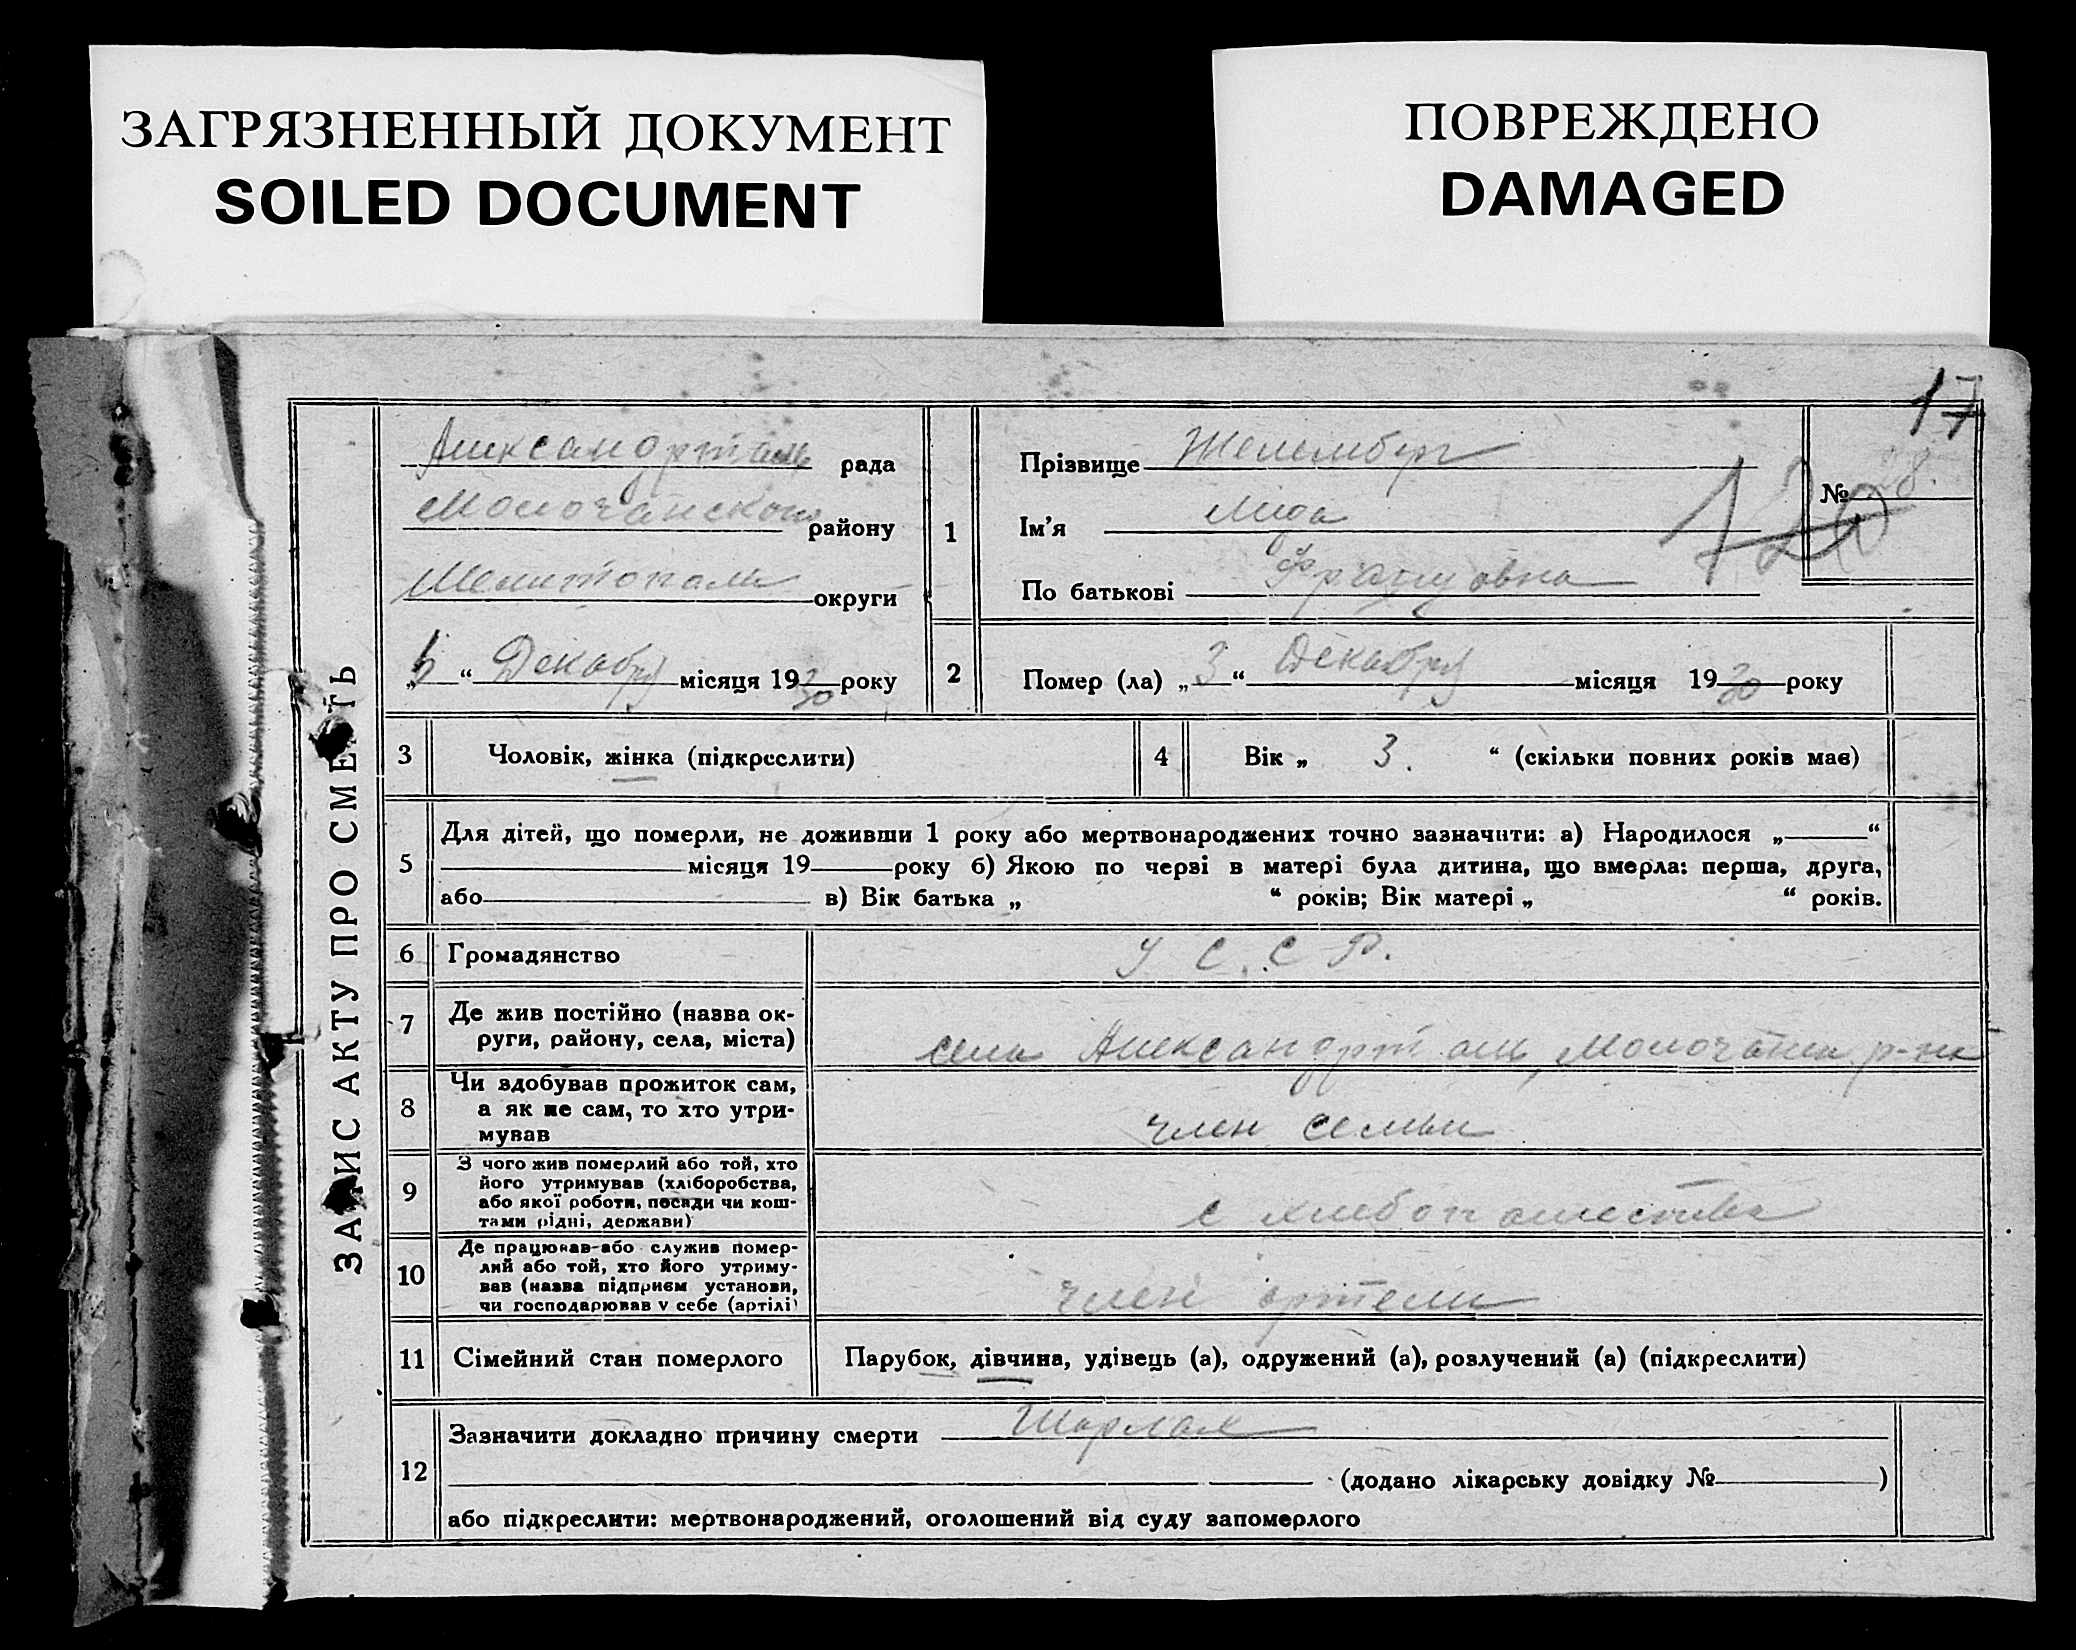 ЗАГРЯЗНЕННЫЙ ДОКУМЕНТ
SOILED DOCUMENT
ПОВРЕЖДЕНО
DAMAGED
17
ЗАПИС АКТУ ПРО СМЕРТЬ
Александрталь рада
Молочанского району
Мелитополь округи
„5“ Декабря місяця 1930 року
1
Прізвище
Ім'я Лида
По батькові Францовна
№ 28.
120
2
Помер (ла) „3“ Декабря місяця 1930 року
3 Чоловік, жінка (підкреслити)
4 Вік „ 3. “ (скільки повних років має)
5 Для дітей, що померли, не доживши 1 року або мертвонароджених точно зазначити: а) Народилося „ “
місяця 19 року б) Якою по черзі в матері була дитина, що вмерла: перша, друга,
або в) Вік батька „ “ років; Вік матері „ “ років.
6 Громадянство У С. С. Р.
7 Де жив постійно (назва ок-
руги, району, села, міста)
село Александрталь, Молочанск р-на
8 Чи здобував прожиток сам,
а як не сам, то хто утри-
мував
член семьи
9 З чого жив померлий або той, хто
його утримував (хліборобства,
або якої роботи, посади чи кош-
тами рідні, держави)
с хлебопашества
10 Де працював-або служив помер-
лий або той, хто його утриму-
вав (назва підприєм установи,
чи господарював у себе (артілі)
член артели
11 Сімейний стан померлого Парубок, дівчина, удівець (а), одружений (а), розлучений (а) (підкреслити)
12 Зазначити докладно причину смерти Шарлах
(додано лікарську довідку № )
або підкреслити: мертвонароджений, оголошений від суду запомерлого